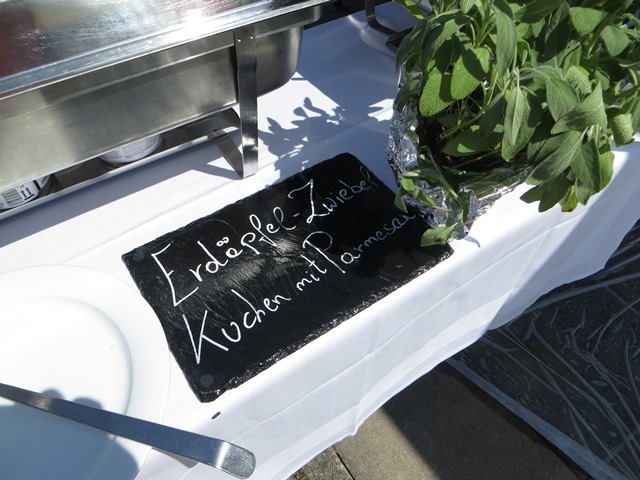 Erdäpfel-Zwiebel
Kuchen mit Parmesan